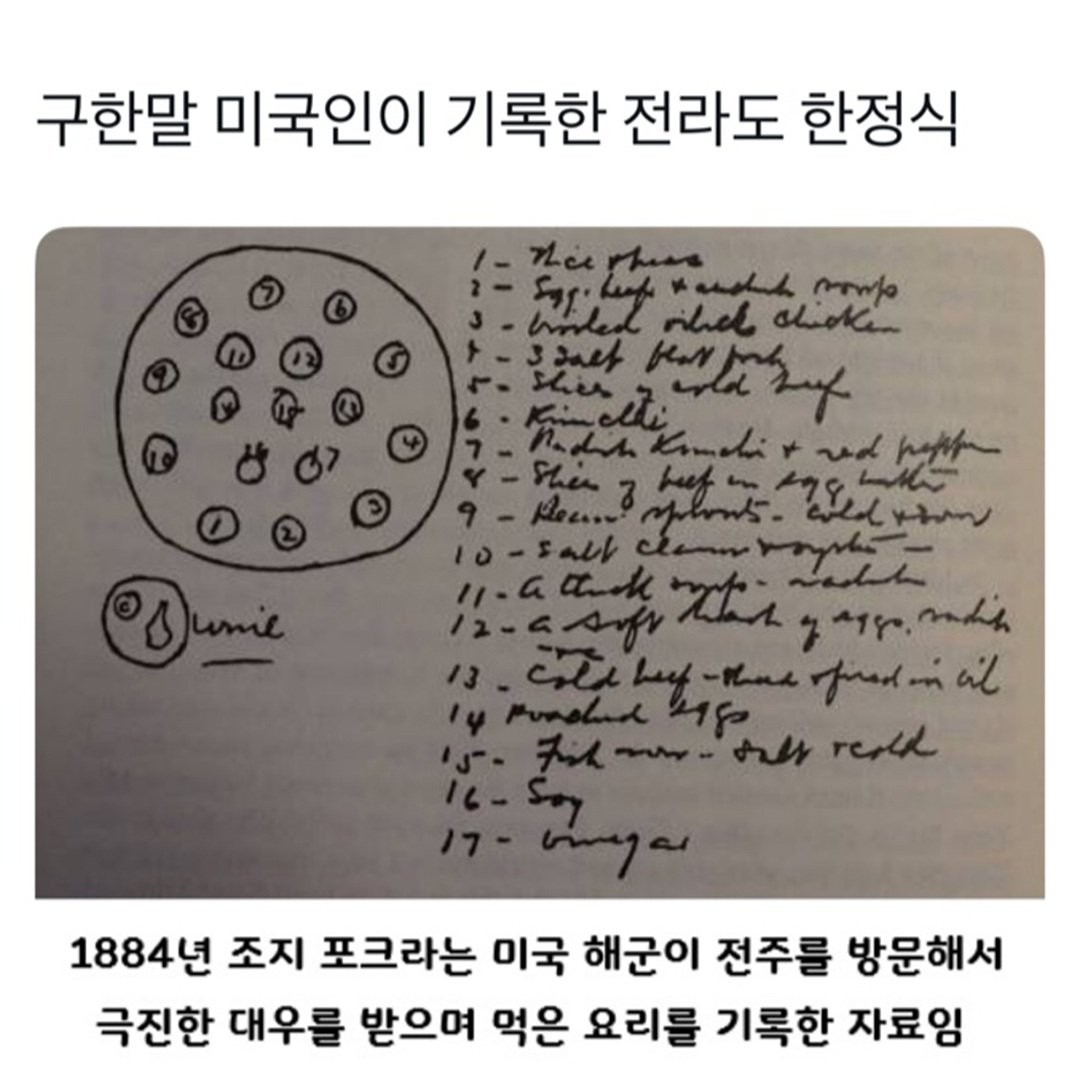 구한말 미국인이 기록한 전라도 한정식
7
8 6
11 12 5
9
14 15 13
10 4
16 17
1 2 3
1 - Rice
2 - Egg. beef & radish soup
3 - broiled chicken
4 - 3 salt
5 - Slices of cold beef
6 - Kimchi
7 - Radish Kimchi + red pepper
8 - Slices of beef in egg batter
9 - Bean sprouts - cold & sour
10 - Salt clams & oysters
11 - a thick soup - radish
12 - a soft hash of eggs. radish
13 - Cold beef - fried in oil
14 Poached eggs
15 - Fish roe - salt & cold
16 - Soy
17 - Vinegar
wine
1884년 조지 포크라는 미국 해군이 전주를 방문해서
극진한 대우를 받으며 먹은 요리를 기록한 자료임